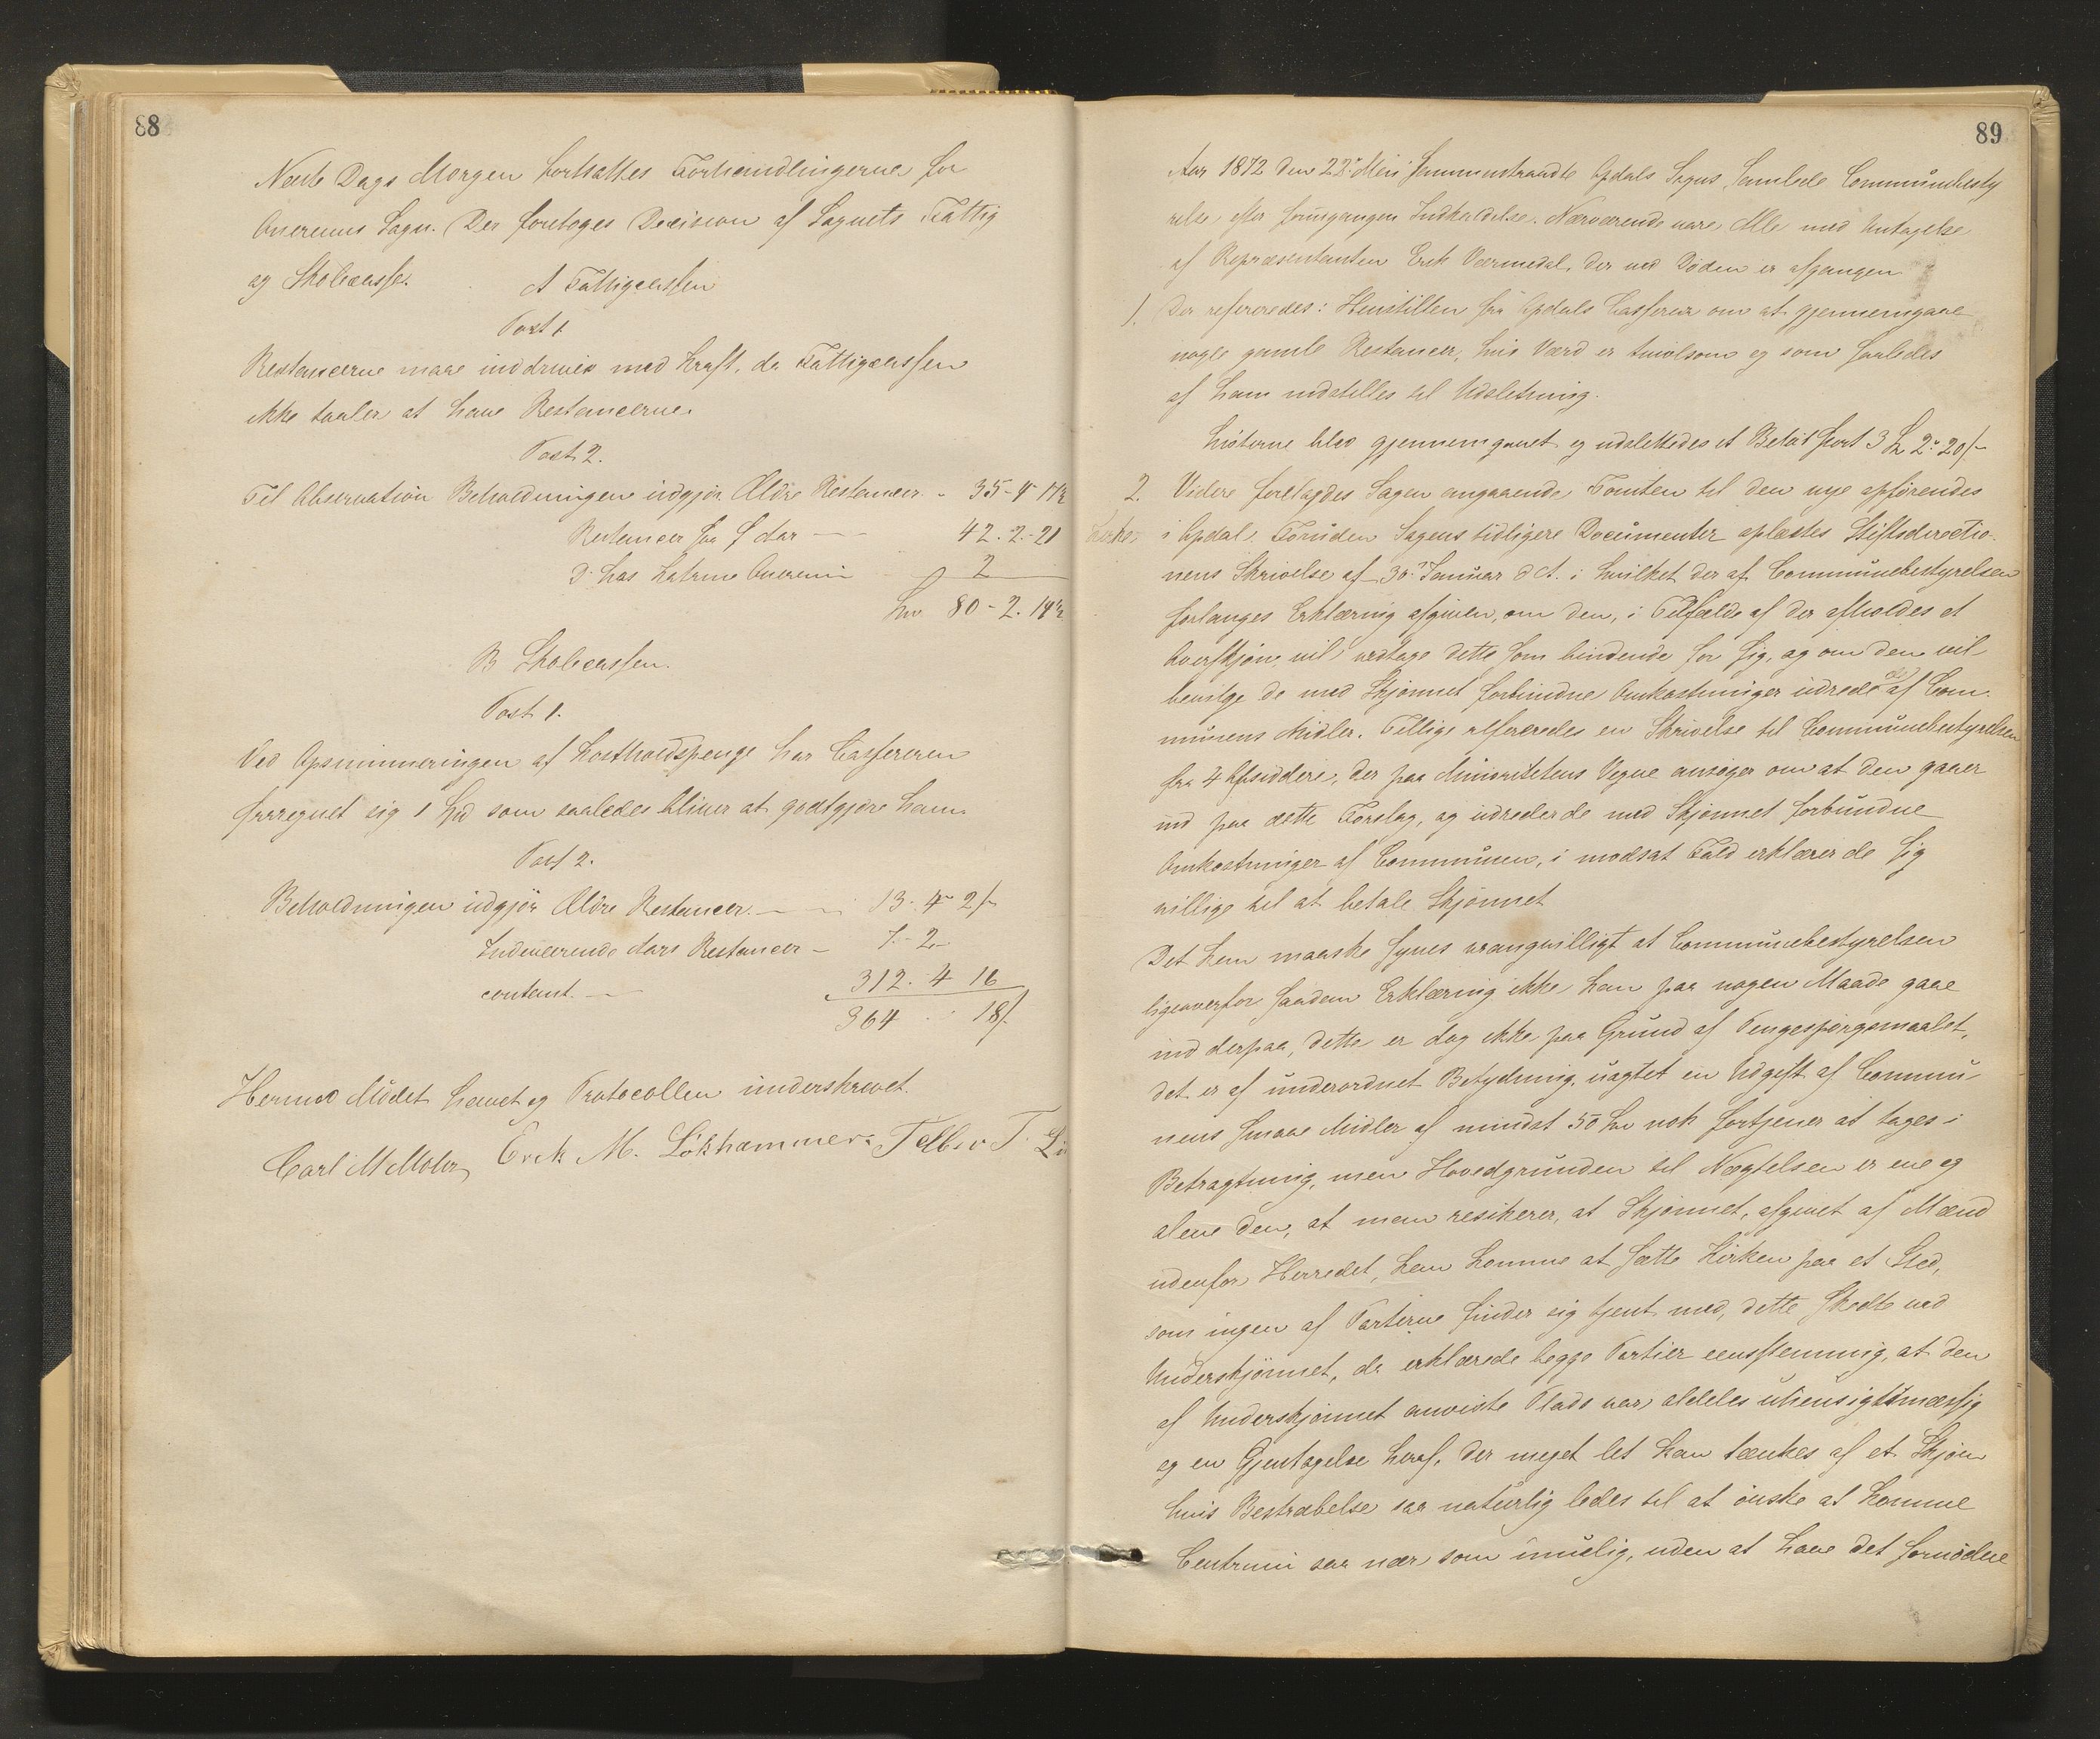 88
Næste Dags Morgen fortsattes Forhandlingerne for
Qverems Sogn. Der foretoges Decision af Sognets Fattig
og Skolecasse.
A Fattigcassen
Post 1
Restancerne maae inddrives med Kraft, da Fattigcassen
ikke taaler at have Restancerne.
Post 2.
Til Observation Beholdningen udgjør Ældre Restancer - 35-4-17½
Restancer for f Aar — 42.2.-21
D. hos Catrine Overem 2
80-2.14½
B Skolecassen.
Post 1.
Ved Opsummeringen af Kostholdspenge har Cassereren
forregnet sig 1 som saaledes bliver at godtgjøre ham
Post 2.
Beholdningen udgjør Ældre Restancer. — 13-4-2/-
Indeværende Aars Restancer - 7-2-
contant. — 312-4 16
364 - - 18/-
Hermed Mødet hævet og Protocollen underskrevet.
Carl M Moler Erik M. Løkhammer Tellev T.
89
Aar 1872 den 22de Mai Sammentraadte Opdals Sogns Samlede Communbesty
relse efter forudgangen Indkaldelse. Nærværende vare Alle med Untagelse
af Repræsentanten Erik Værmedal, der ved Døden er afgangen
1. Der refereredes: Henstillen fra Opdals Casserer om at gjennemgaae
nogle gamle Restancer, hvis Værd er tvivlsom og som saaledes
af ham indstilles til Udslettning.
Listerne blev gjennemgaaet og udslettedes et Beløb stort 3 2. 20/-
2. Videre forelagdes Sagen angaaende Tomten til den nye opførendes
Kirke i Opdal. Foruden Sagens tidligere Documenter oplæstes Stiftsdirectio-
nens Skrivelse af 30te Januar d A. i hvilket der af Communebestyrelsen
forlanges Erklæring afgiven, om den, i Tilfælde af der afholdes et
Overskjøn, vil vedtage dette som bindende for sig, og om den vil
bevilge de med Skjønnet forbundne Omkostninger udrede(de) af Com-
munens Midler. Tillige refereredes en Skrivelse til Communebestyrelsen
fra 4 Opsiddere, der paa Minoritetens Vegne ansøger om at den gaaer
ind paa dette Forslag, og udreder de med Skjønnet forbundne
Omkostninger af Communen, i modsat Fald erklærer de sig
villige til at betale Skjønnet
Det kan maaske synes vrangvilligt at Communebestyrelsen
ligeoverfor saadan Erklæring ikke kan paa nogen Maade gaae
ind derpaa, dette er dog ikke paa Grund af Pengespørgsmaalet,
det er af underordnet Betydning, uagtet en Udgift af Commu-
nens smaae Midler af mindst 50 nok fortjener at tages i
Betragtning, men Hovedgrunden til Nægtelsen er ene og
alene den, at man resikerer, at Skjønnet, afgivet af Mænd
udenfor Herredet, kan komme at sætte Kirken paa et Sted,
som ingen af Partierne finder sig tjent med, dette skedte ved
Underskjønnet, da erklærede begge Partier eensstemmig, at den
af Underskjønnet anviste Plads var aldeles uhensigtsmæssig
og en Gjentagelse heraf, der meget let kan tænkes af et Skjøn
hvis Bestræbelse saa naturlig ledes til at ønske at komme
Centrum saa nær som muelig, uden at have det fornødne